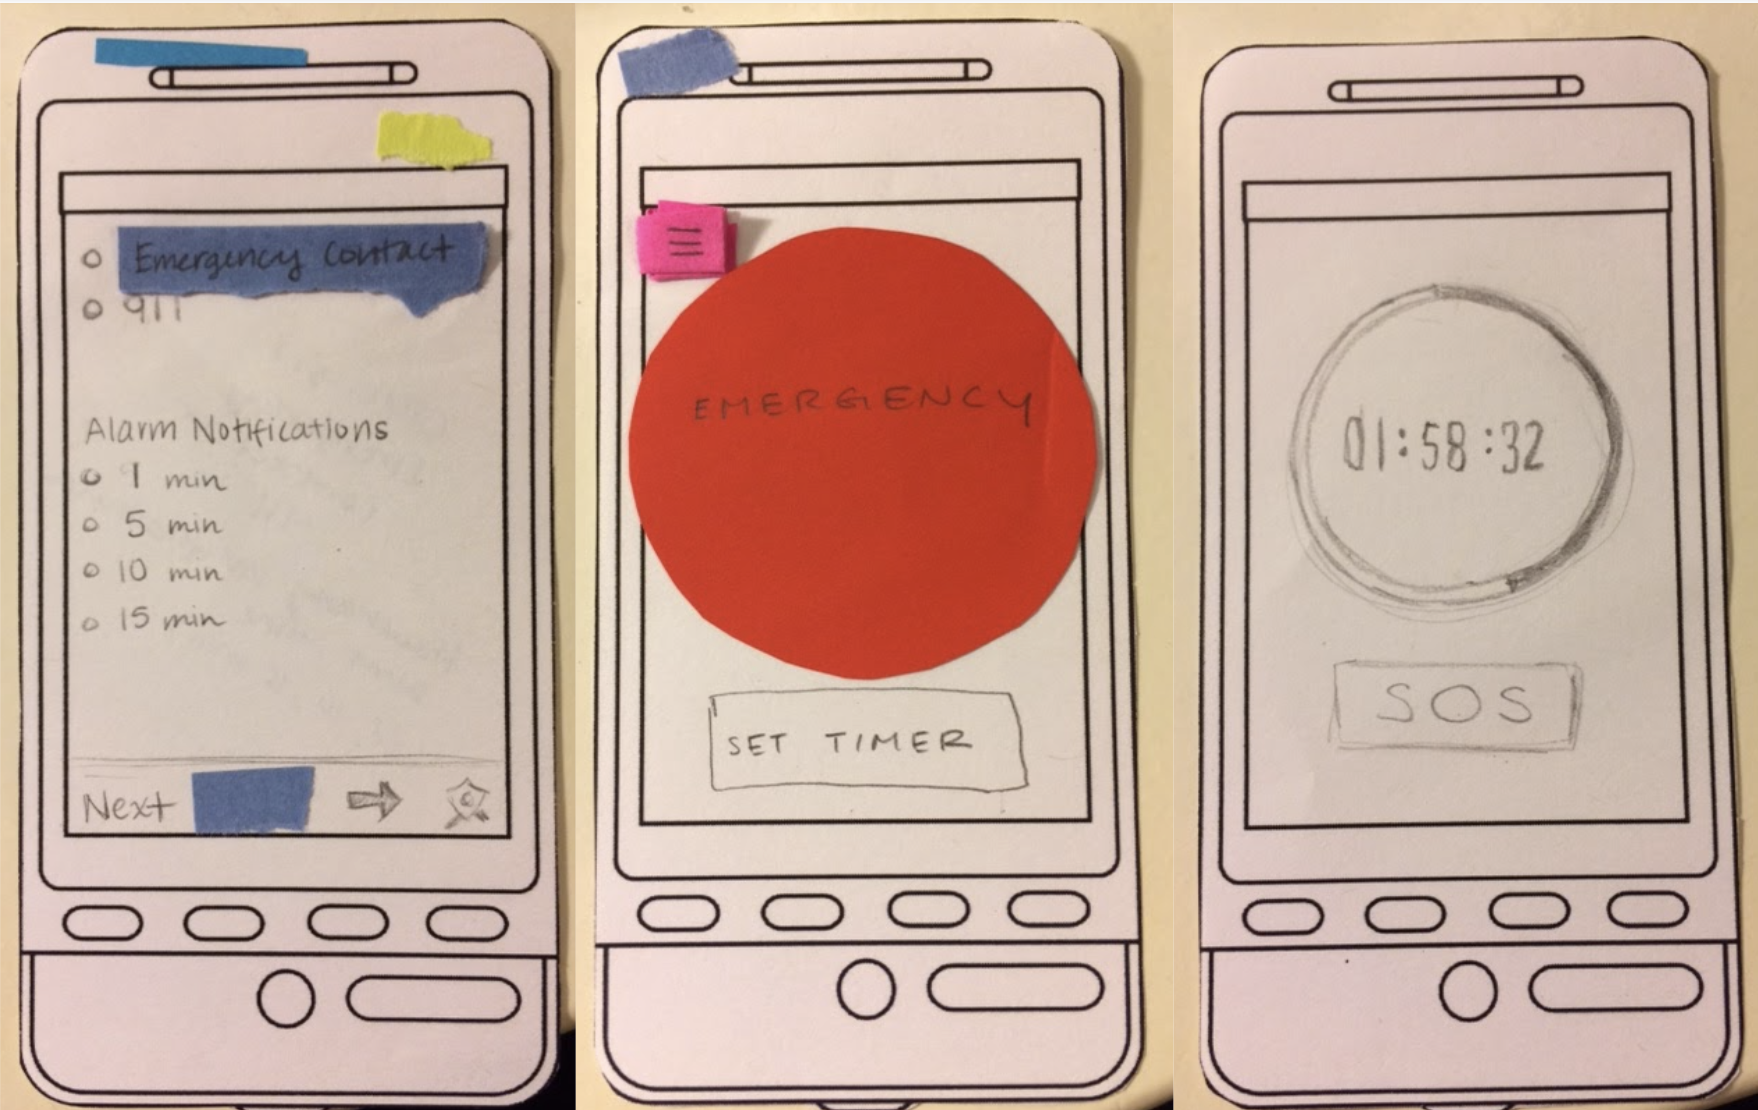 Emergency Contact
911
Alarm Notifications
1 min
5 min
10 min
15 min
Next
EMERGENCY
SET TIMER
01:58:32
SOS